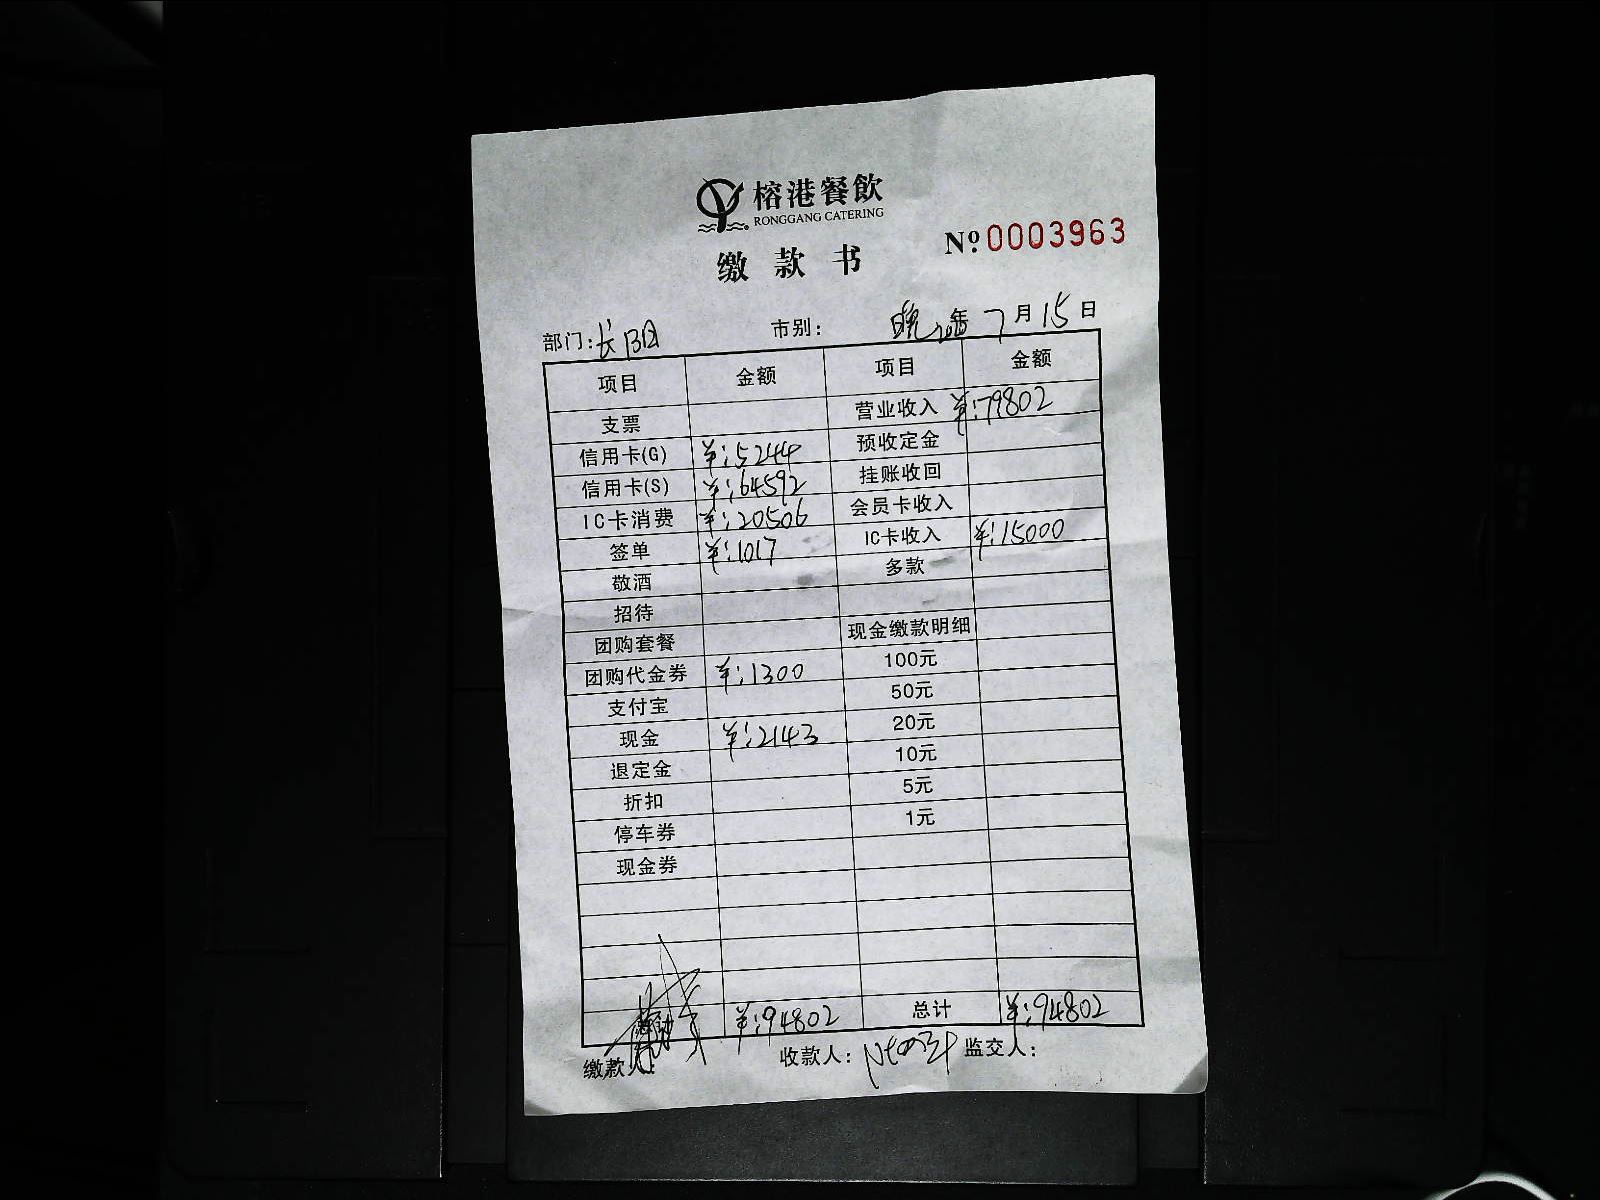 榕港餐飲
RONGGANG CATERING
缴款书 Nº 0003963
部门: 市别: 晚 年 7月15日
项目 金额 项目 金额
支票 营业收入 ¥:79802
信用卡(G) ¥:5244 预收定金
信用卡(S) ¥:64592 挂账收回
IC卡消费 ¥:20506 会员卡收入
签单 ¥:1017 IC卡收入 ¥:15000
敬酒 多款
招待
团购套餐 现金缴款明细
团购代金券 ¥:1300 100元
支付宝 50元
现金 ¥:2143 20元
退定金 10元
折扣 5元
停车券 1元
现金券
¥:94802 总计 ¥:94802
缴款人: 收款人: 监交人: